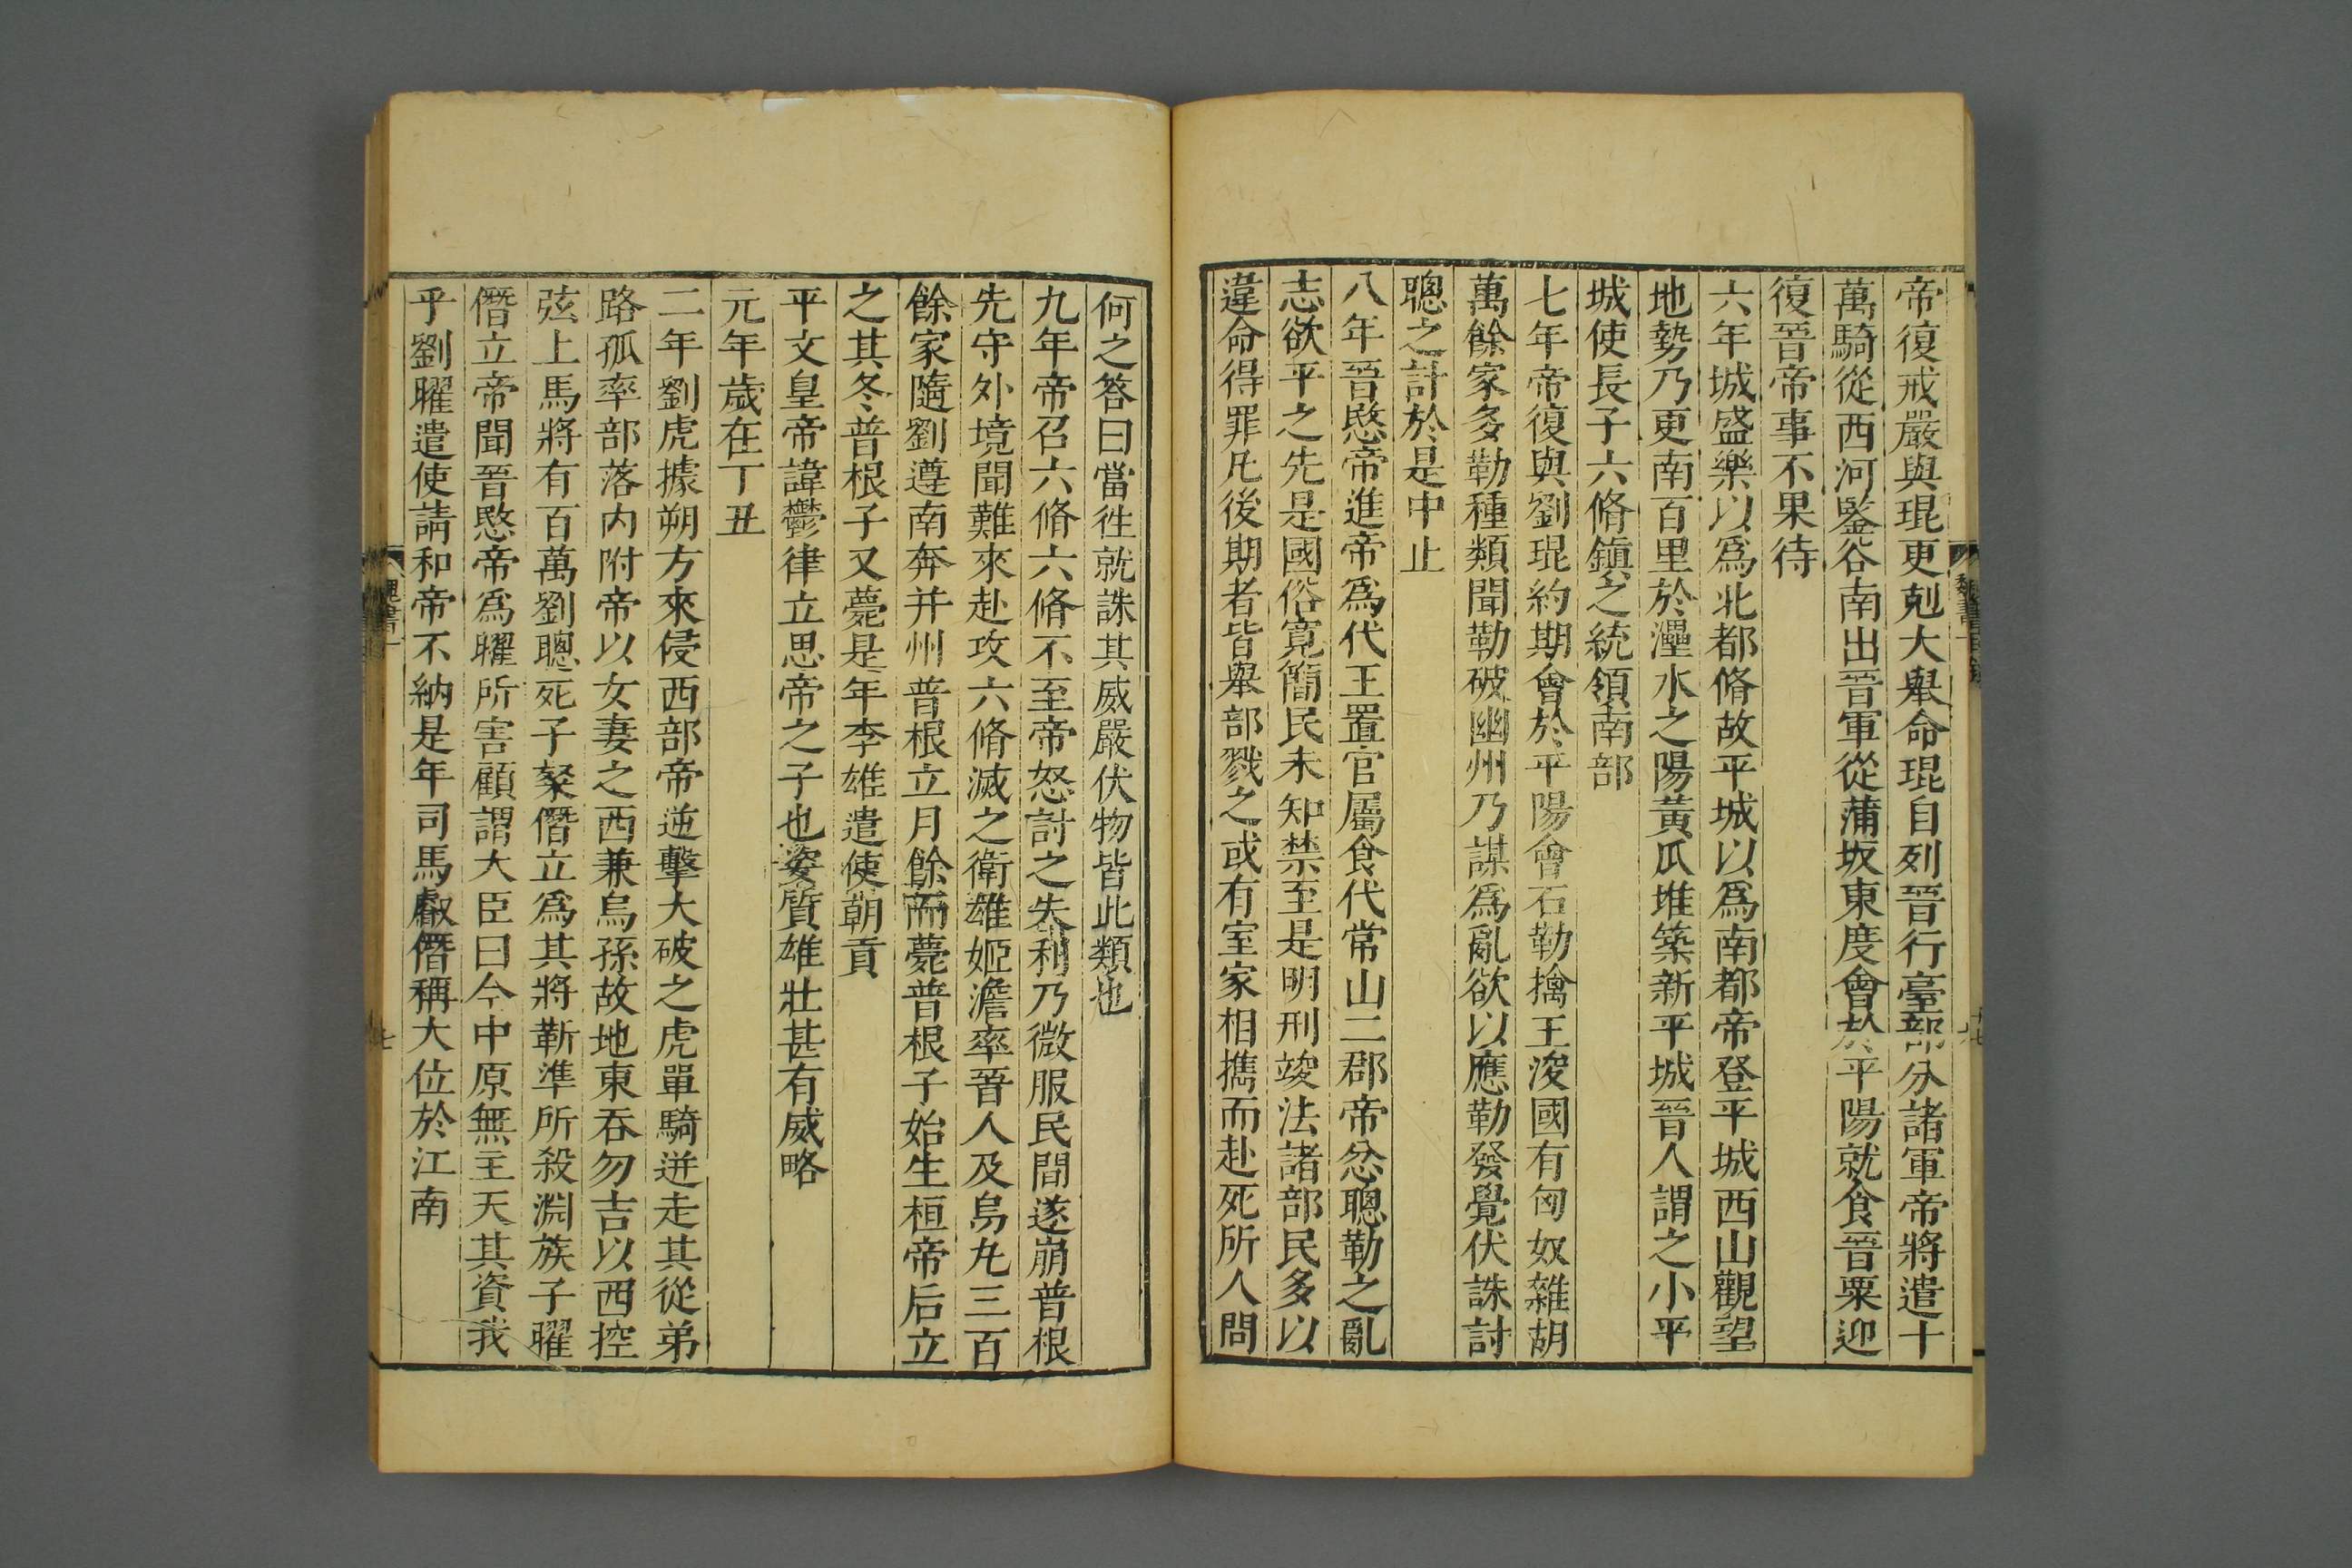 帝復戒嚴與琨更剋大舉命琨自列晉行臺部分諸軍帝將遣十
萬騎從西河鑒谷南出晉軍從蒲坂東度會於平陽就食晉粟迎
復晉帝事不果待
六年城盛樂以爲北都脩故平城以爲南都帝登平城西山觀望
地勢乃更南百里於灅水之陽黃瓜堆築新平城晉人謂之小平
城使長子六脩鎮之統領南部
七年帝復與劉琨約期會於平陽會石勒擒王浚國有匈奴雜胡
萬餘家多勒種類聞勒破幽州乃謀爲亂欲以應勒發覺伏誅討
聰之計於是中止
八年晉愍帝進帝爲代王置官屬食代常山二郡帝忿聰勒之亂
志欲平之先是國俗寬簡民未知禁至是明刑竣法諸部民多以
違命得罪凡後期者皆舉部戮之或有室家相擕而赴死所人問
何之答曰當徃就誅其威嚴伏物皆此類也
九年帝召六脩六脩不至帝怒討之失利乃微服民間遂崩普根
先守外境聞難來赴攻六脩滅之衛雄姬澹率晉人及烏丸三百
餘家隨劉遵南奔并州普根立月餘而薨普根子始生桓帝后立
之其冬普根子又薨是年李雄遣使朝貢
平文皇帝諱鬱律立思帝之子也姿質雄壯甚有威略
元年歲在丁丑
二年劉虎據朔方來侵西部帝逆擊大破之虎單騎迸走其從弟
路孤率部落內附帝以女妻之西兼烏孫故地東吞勿吉以西控
弦上馬將有百萬劉聰死子粲僭立爲其將靳準所殺淵族子曜
僭立帝聞晉愍帝爲曜所害顧謂大臣曰今中原無主天其資我
乎劉曜遣使請和帝不納是年司馬叡僭稱大位於江南
魏書一
七